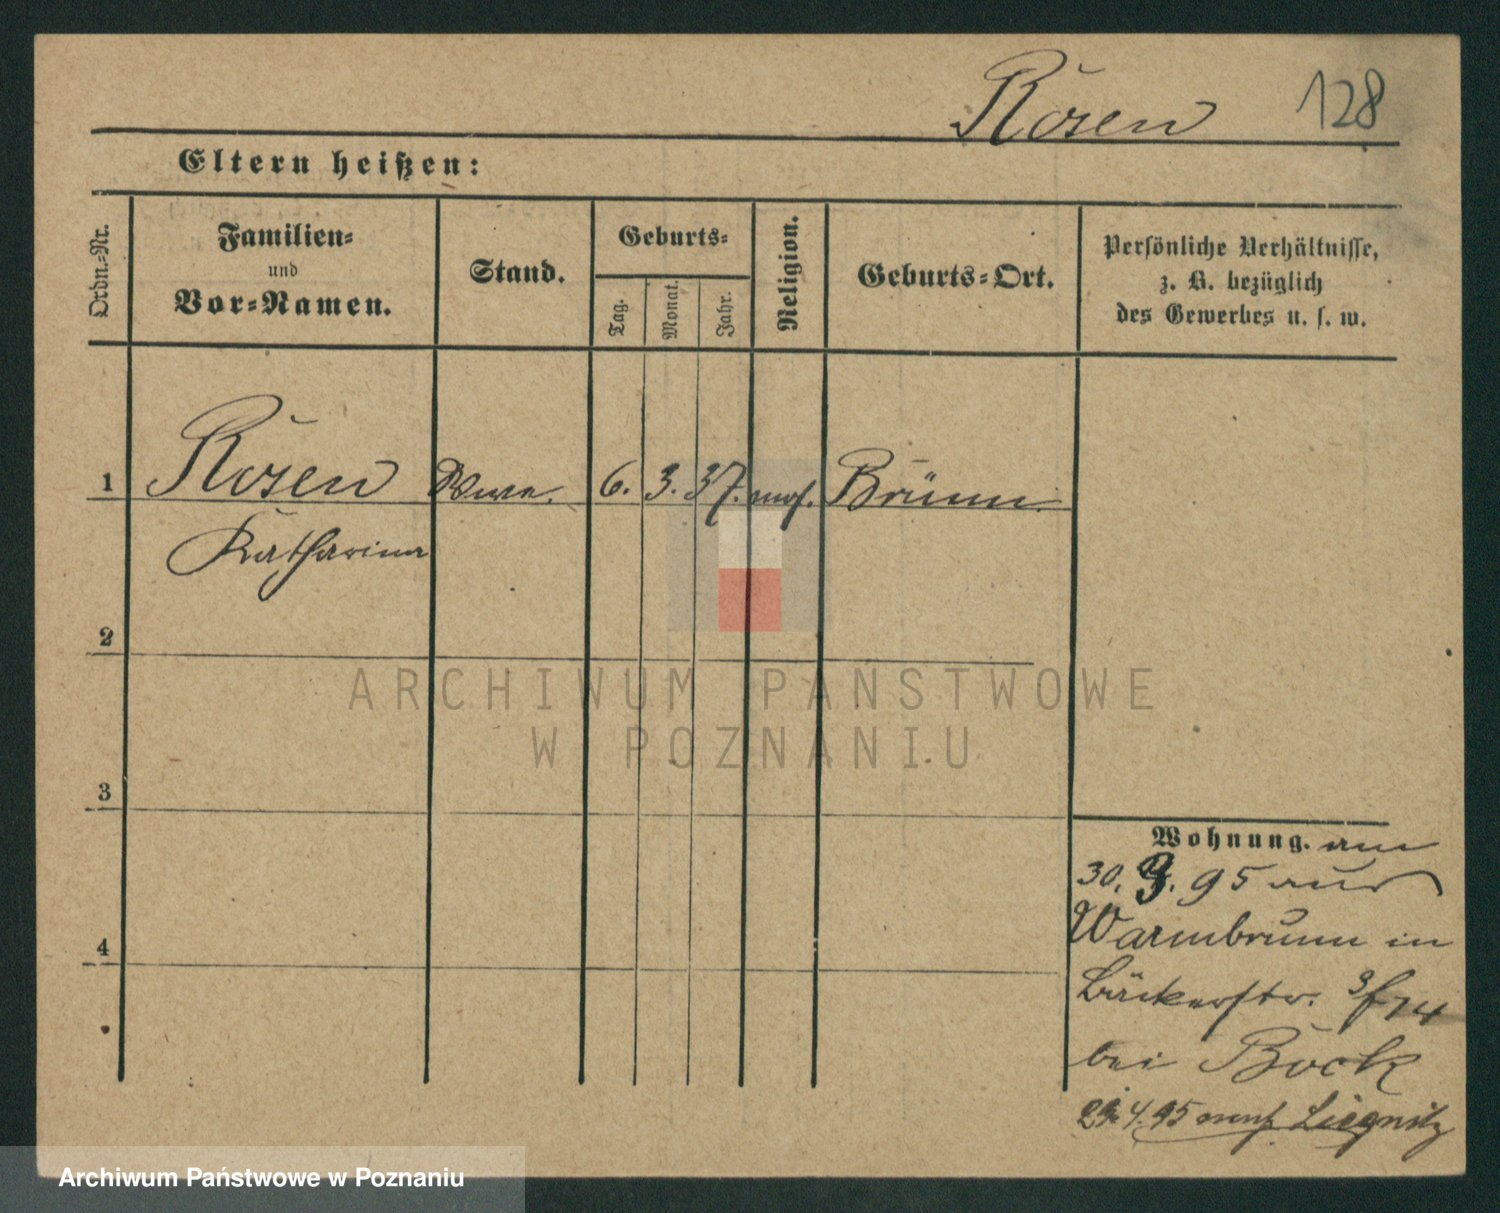 Rosen 128
Eltern heißen:
Ordn.-Nr.
Familien-
und
Vor-Namen.
Stand.
Geburts-
Tag.
Monat.
Jahr.
Religion.
Geburts-Ort.
Persönliche Verhältnisse,
z. B. bezüglich
des Gewerbes u. s. w.
1 Rosen Wwe. 6. 3. 37. mos. Brünn.
Katharina
2
3
4
Wohnung. am
30. 3. 95 aus
Warmbrunn in
Bäckerstr. 14
bei Bock
4. 95 nach Liegnitz
ARCHIWUM PAŃSTWOWE
W POZNANIU
Archiwum Państwowe w Poznaniu